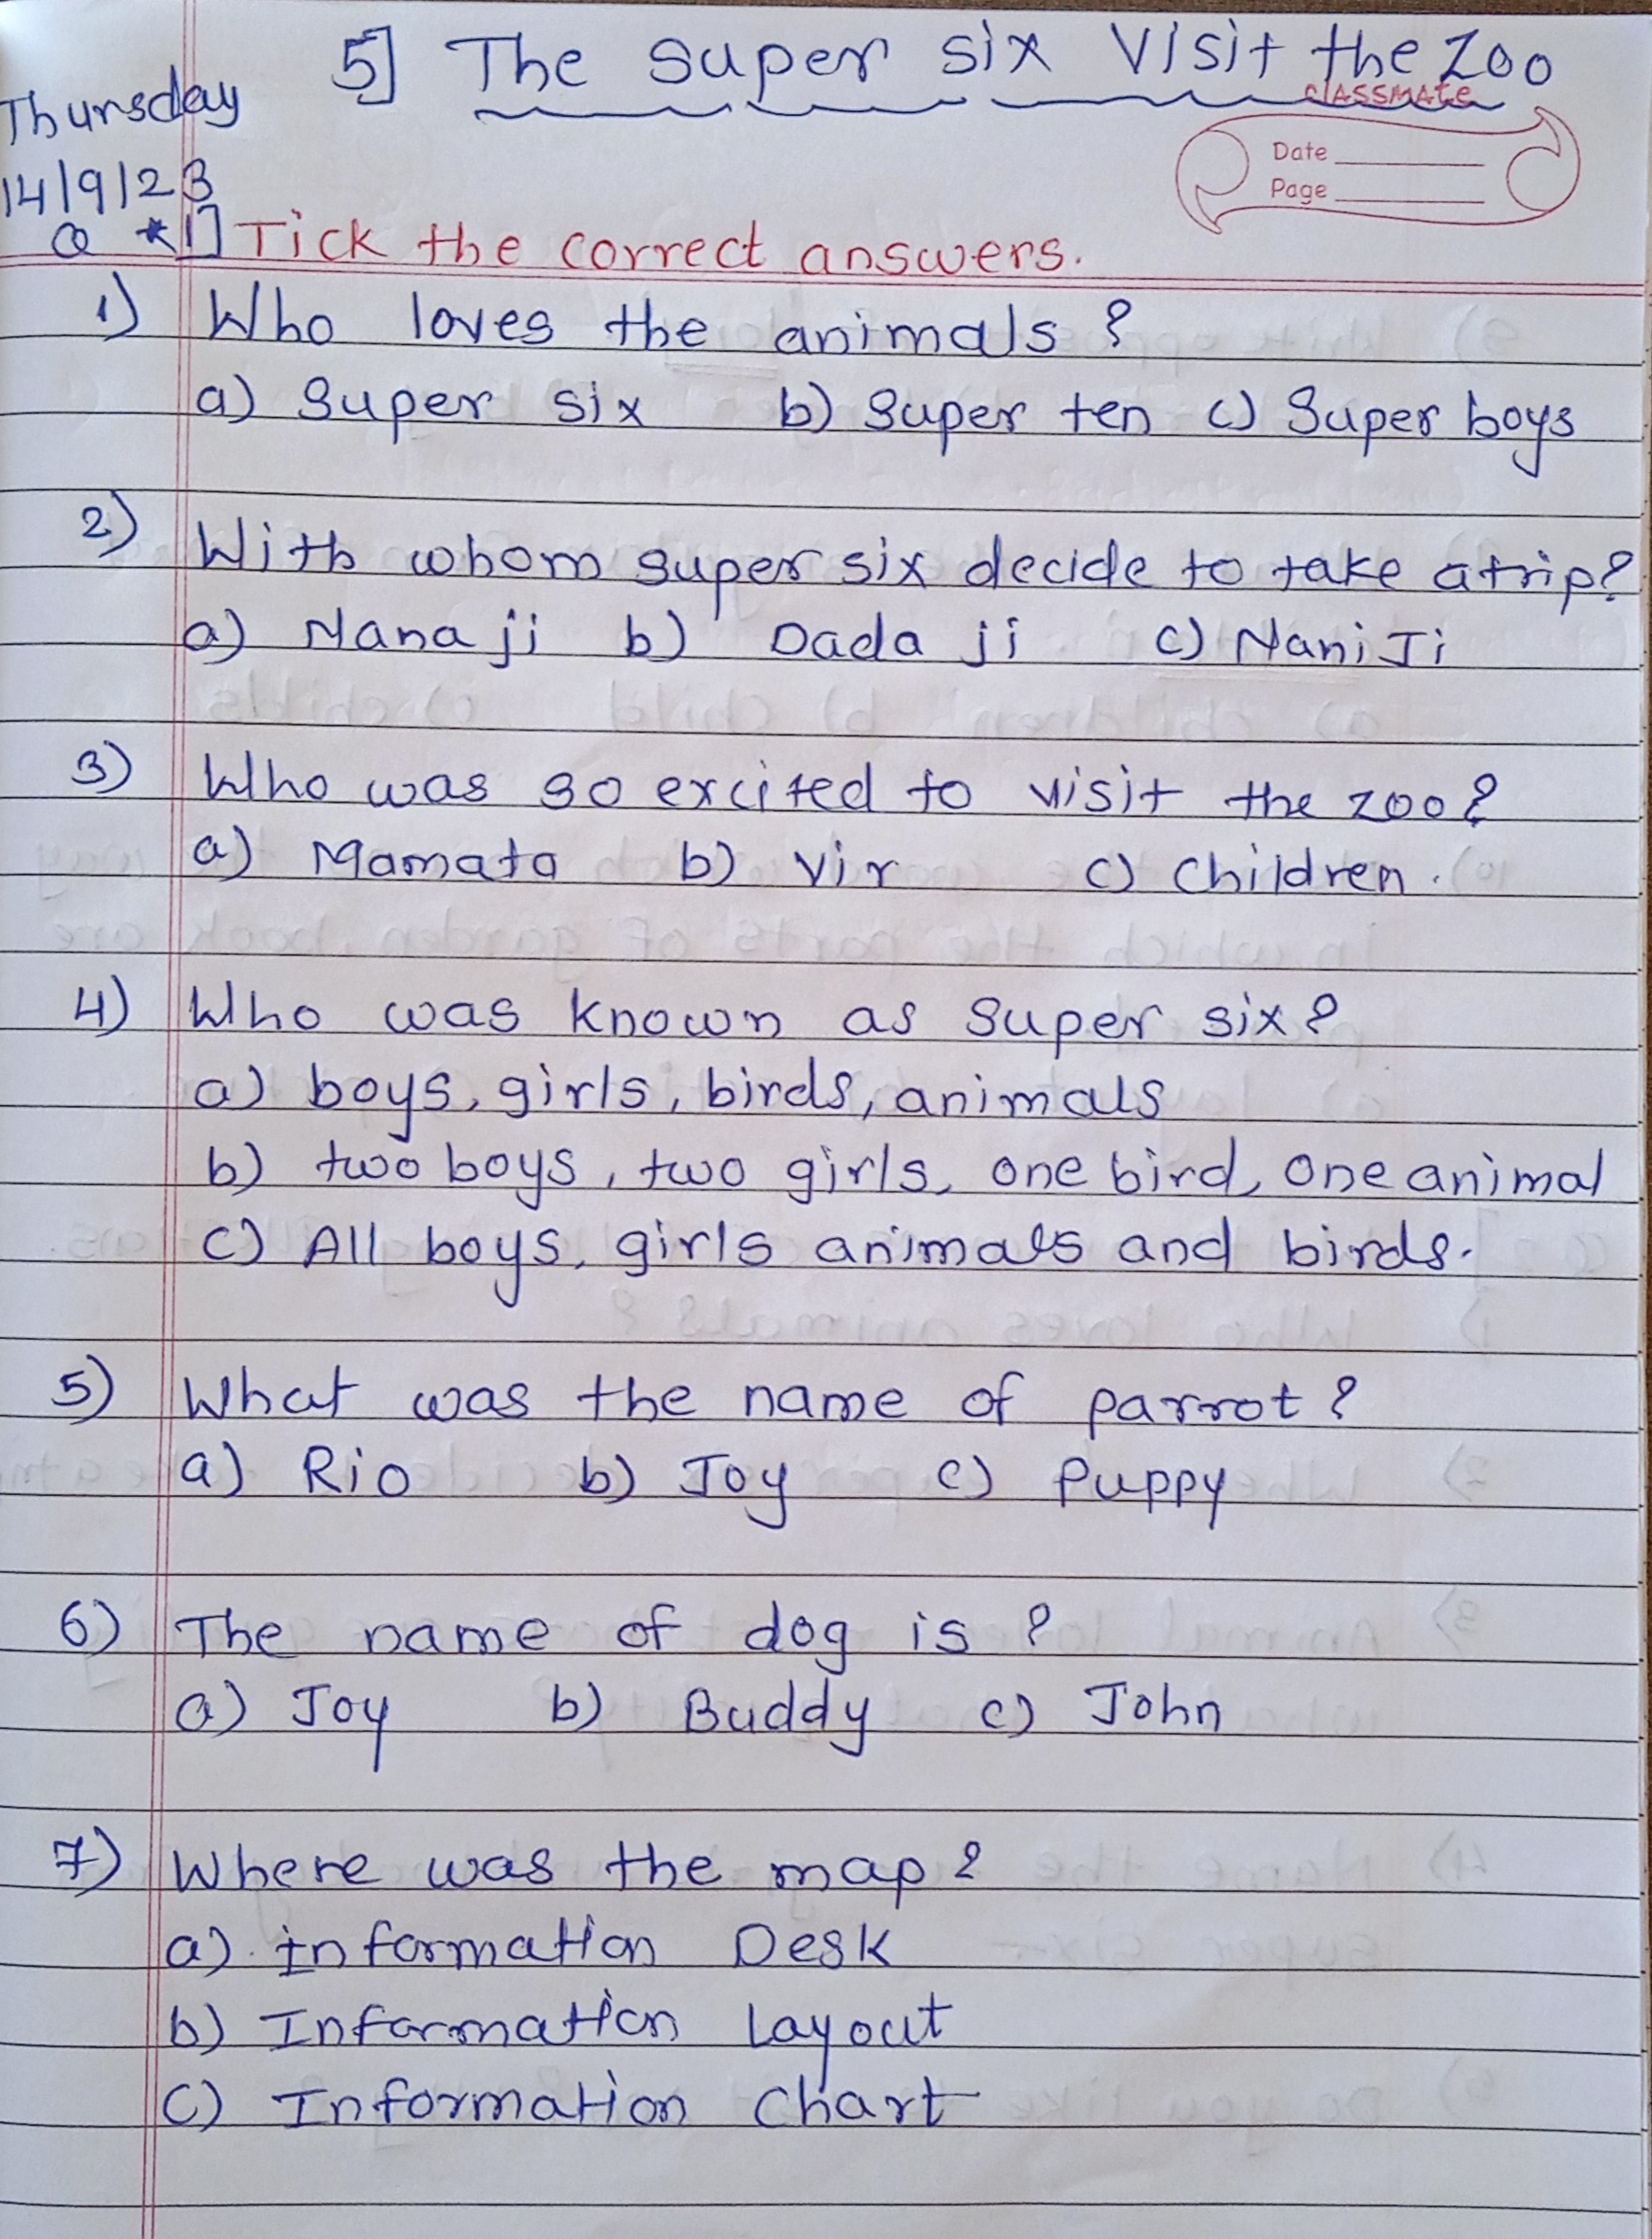 5] The Super six Visit the Zoo
Thursday
classmate
Date
Page
14/9/23
Q *1] Tick the correct answers.
1) Who loves the animals ?
a) Super six b) Super ten c) Super boys
2) With whom super six decide to take a trip?
a) Nana ji b) Dada ji c) Nani Ji
3) Who was so excited to visit the zoo?
a) Mamata b) Vir c) Children.
4) Who was known as Super six?
a) boys, girls, birds, animals
b) two boys, two girls, one bird, one animal
c) All boys, girls animals and birds.
5) What was the name of parrot ?
a) Rio b) Joy c) Puppy
6) The name of dog is ?
a) Joy b) Buddy c) John
7) Where was the map ?
a) information Desk
b) Information Layout
c) Information Chart